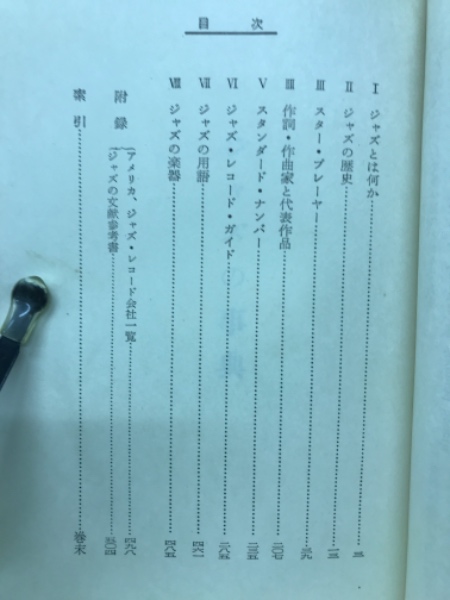 目次
I ジャズとは何か……三
II ジャズの歴史……一三
III スター・プレーヤー……三九
IIII 作詞・作曲家と代表作品……二〇七
V スタンダード・ナンバー……二三五
VI ジャズ・レコード・ガイド……二八五
VII ジャズの用語……四六一
VIII ジャズの楽器……四八五
附録
アメリカ、ジャズ・レコード会社一覧……四九八
ジャズの文献参考書……五〇四
索引……巻末